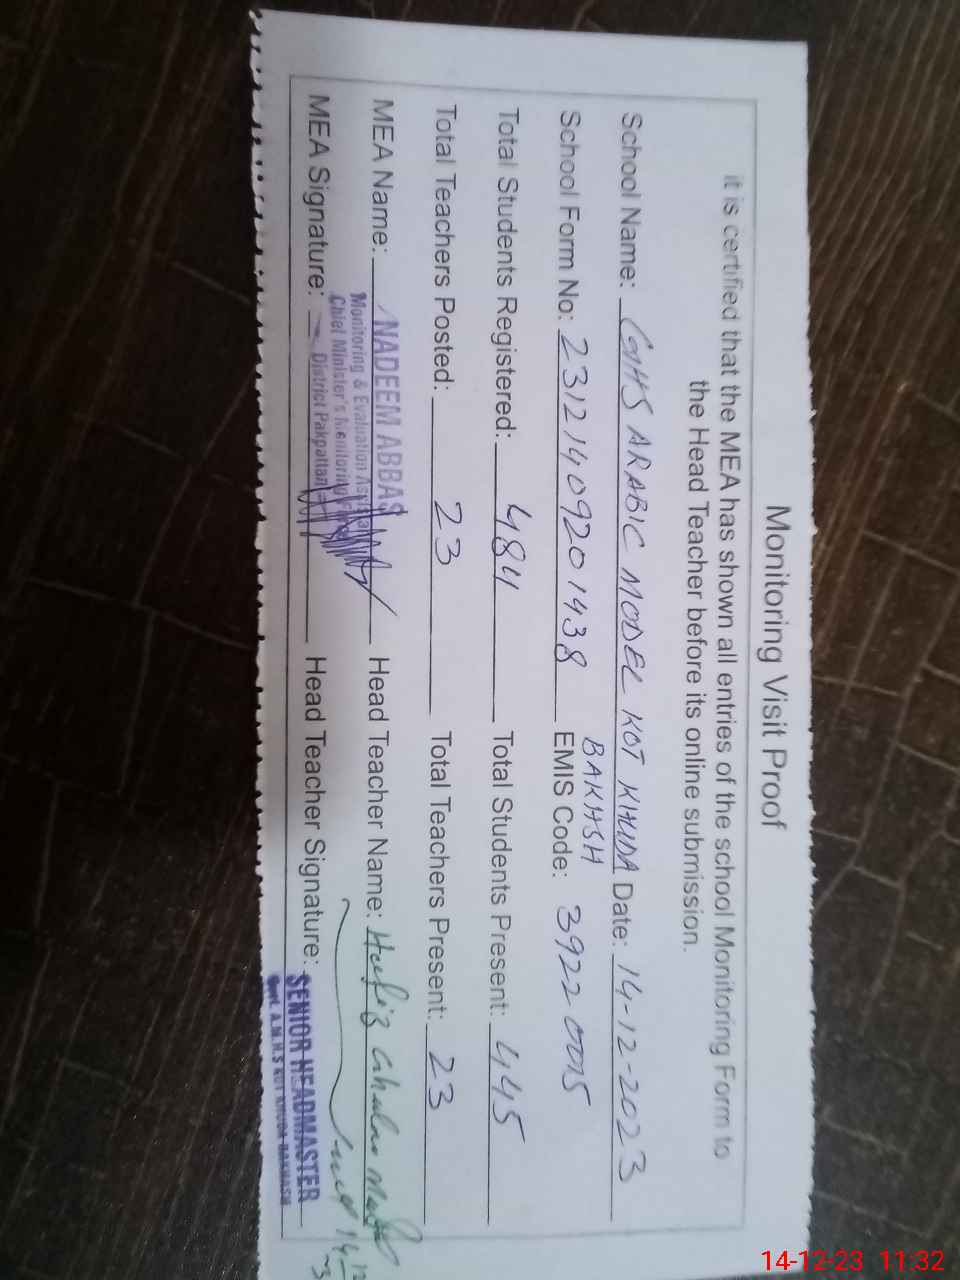 Monitoring Visit Proof
it is certified that the MEA has shown all entries of the school Monitoring Form to
the Head Teacher before its online submission.
School Name: GHS ARABIC MODEL KOT KHUDA Date: 14-12-2023
BAKHSH
School Form No: 23121409201438 EMIS Code: 39220015
Total Students Registered: 484 Total Students Present: 445
Total Teachers Posted: 23 Total Teachers Present: 23
MEA Name: NADEEM ABBAS Head Teacher Name: Hafiz Ghulam
Monitoring & Evaluation
Chief Minister's Monitoring
District Pakpattan
MEA Signature: Head Teacher Signature:
SENIOR HEADMASTER
Govt. A.M.H.S KOT KHUDA BAKHASH
14-12-23 11:32